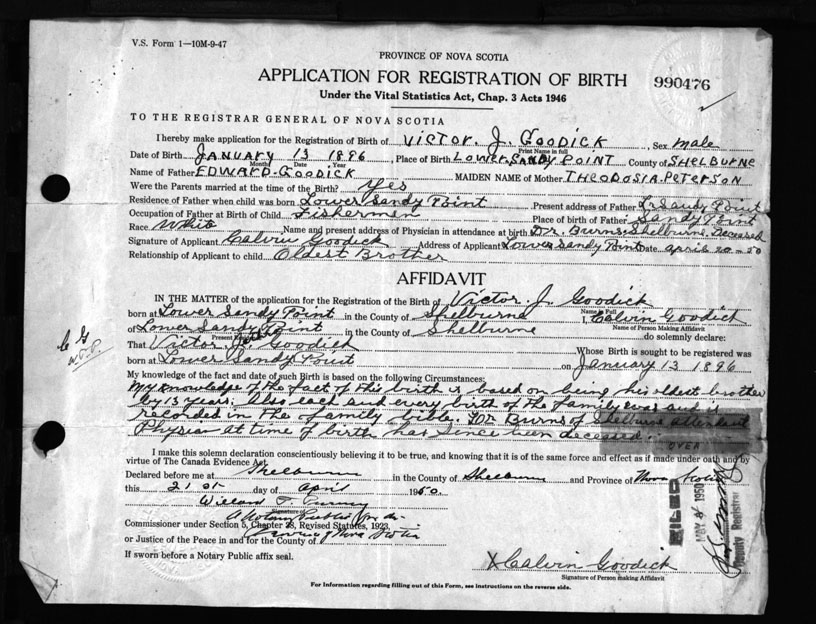 V.S. Form 1—10M-9-47
PROVINCE OF NOVA SCOTIA
APPLICATION FOR REGISTRATION OF BIRTH 990476
Under the Vital Statistics Act, Chap. 3 Acts 1946
TO THE REGISTRAR GENERAL OF NOVA SCOTIA
I hereby make application for the Registration of Birth of VICTOR. J. GOODICK, Sex male
Print Name in full
Date of Birth JANUARY 13 1896, Place of Birth LOWER SANDY POINT County of SHELBURNE
Month Date Year
Name of Father EDWARD GOODICK MAIDEN NAME of Mother THEODOSIA PETERSON
Were the Parents married at the time of the Birth? Yes
Residence of Father when child was born Lower Sandy Point Present address of Father L. Sandy Point
Occupation of Father at Birth of Child Fishermen Place of birth of Father Sandy Point
Race White Name and present address of Physician in attendance at birth Dr. Burns. Shelburne. Deceased
Signature of Applicant Calvin Goodick Address of Applicant Lower Sandy Point Date april 20-50
Relationship of Applicant to child Oldest Brother
AFFIDAVIT
IN THE MATTER of the application for the Registration of the Birth of Victor. J. Goodick
Name in Full
born at Lower Sandy Point in the County of Shelburne I, Calvin Goodick
Name of Person Making Affidavit
of Lower Sandy Point in the County of Shelburne do solemnly declare:
Present
That Victor J. Goodick Whose Birth is sought to be registered was
born at Lower Sandy Point on January 13 1896
My knowledge of the fact and date of such Birth is based on the following Circumstances:
My knowledge of the fact of this birth is based on being his oldest brother
by 13 years. Also each and every birth of the family was and is
recorded in the family bible. Dr Burns of Shelburne attendant
Physian at time of birth has since been deceased.
OVER
I make this solemn declaration conscientiously believing it to be true, and knowing that it is of the same force and effect as if made under oath and by
virtue of The Canada Evidence Act.
Declared before me at Shelburne in the County of Shelburne and Province of Nova Scotia
this 21st day of april 1950.
Signature of
A Notary Public
Commissioner under Section 5, Chapter 28, Revised Statutes, 1923,
or Justice of Peace in and for the County of Nova Scotia
If sworn before a Notary Public affix seal.
FILED
MAY 4 1950
Deputy Registrar
X Calvin Goodick
Signature of Person making Affidavit
For Information regarding filling out of this Form, see instructions on the reverse side.